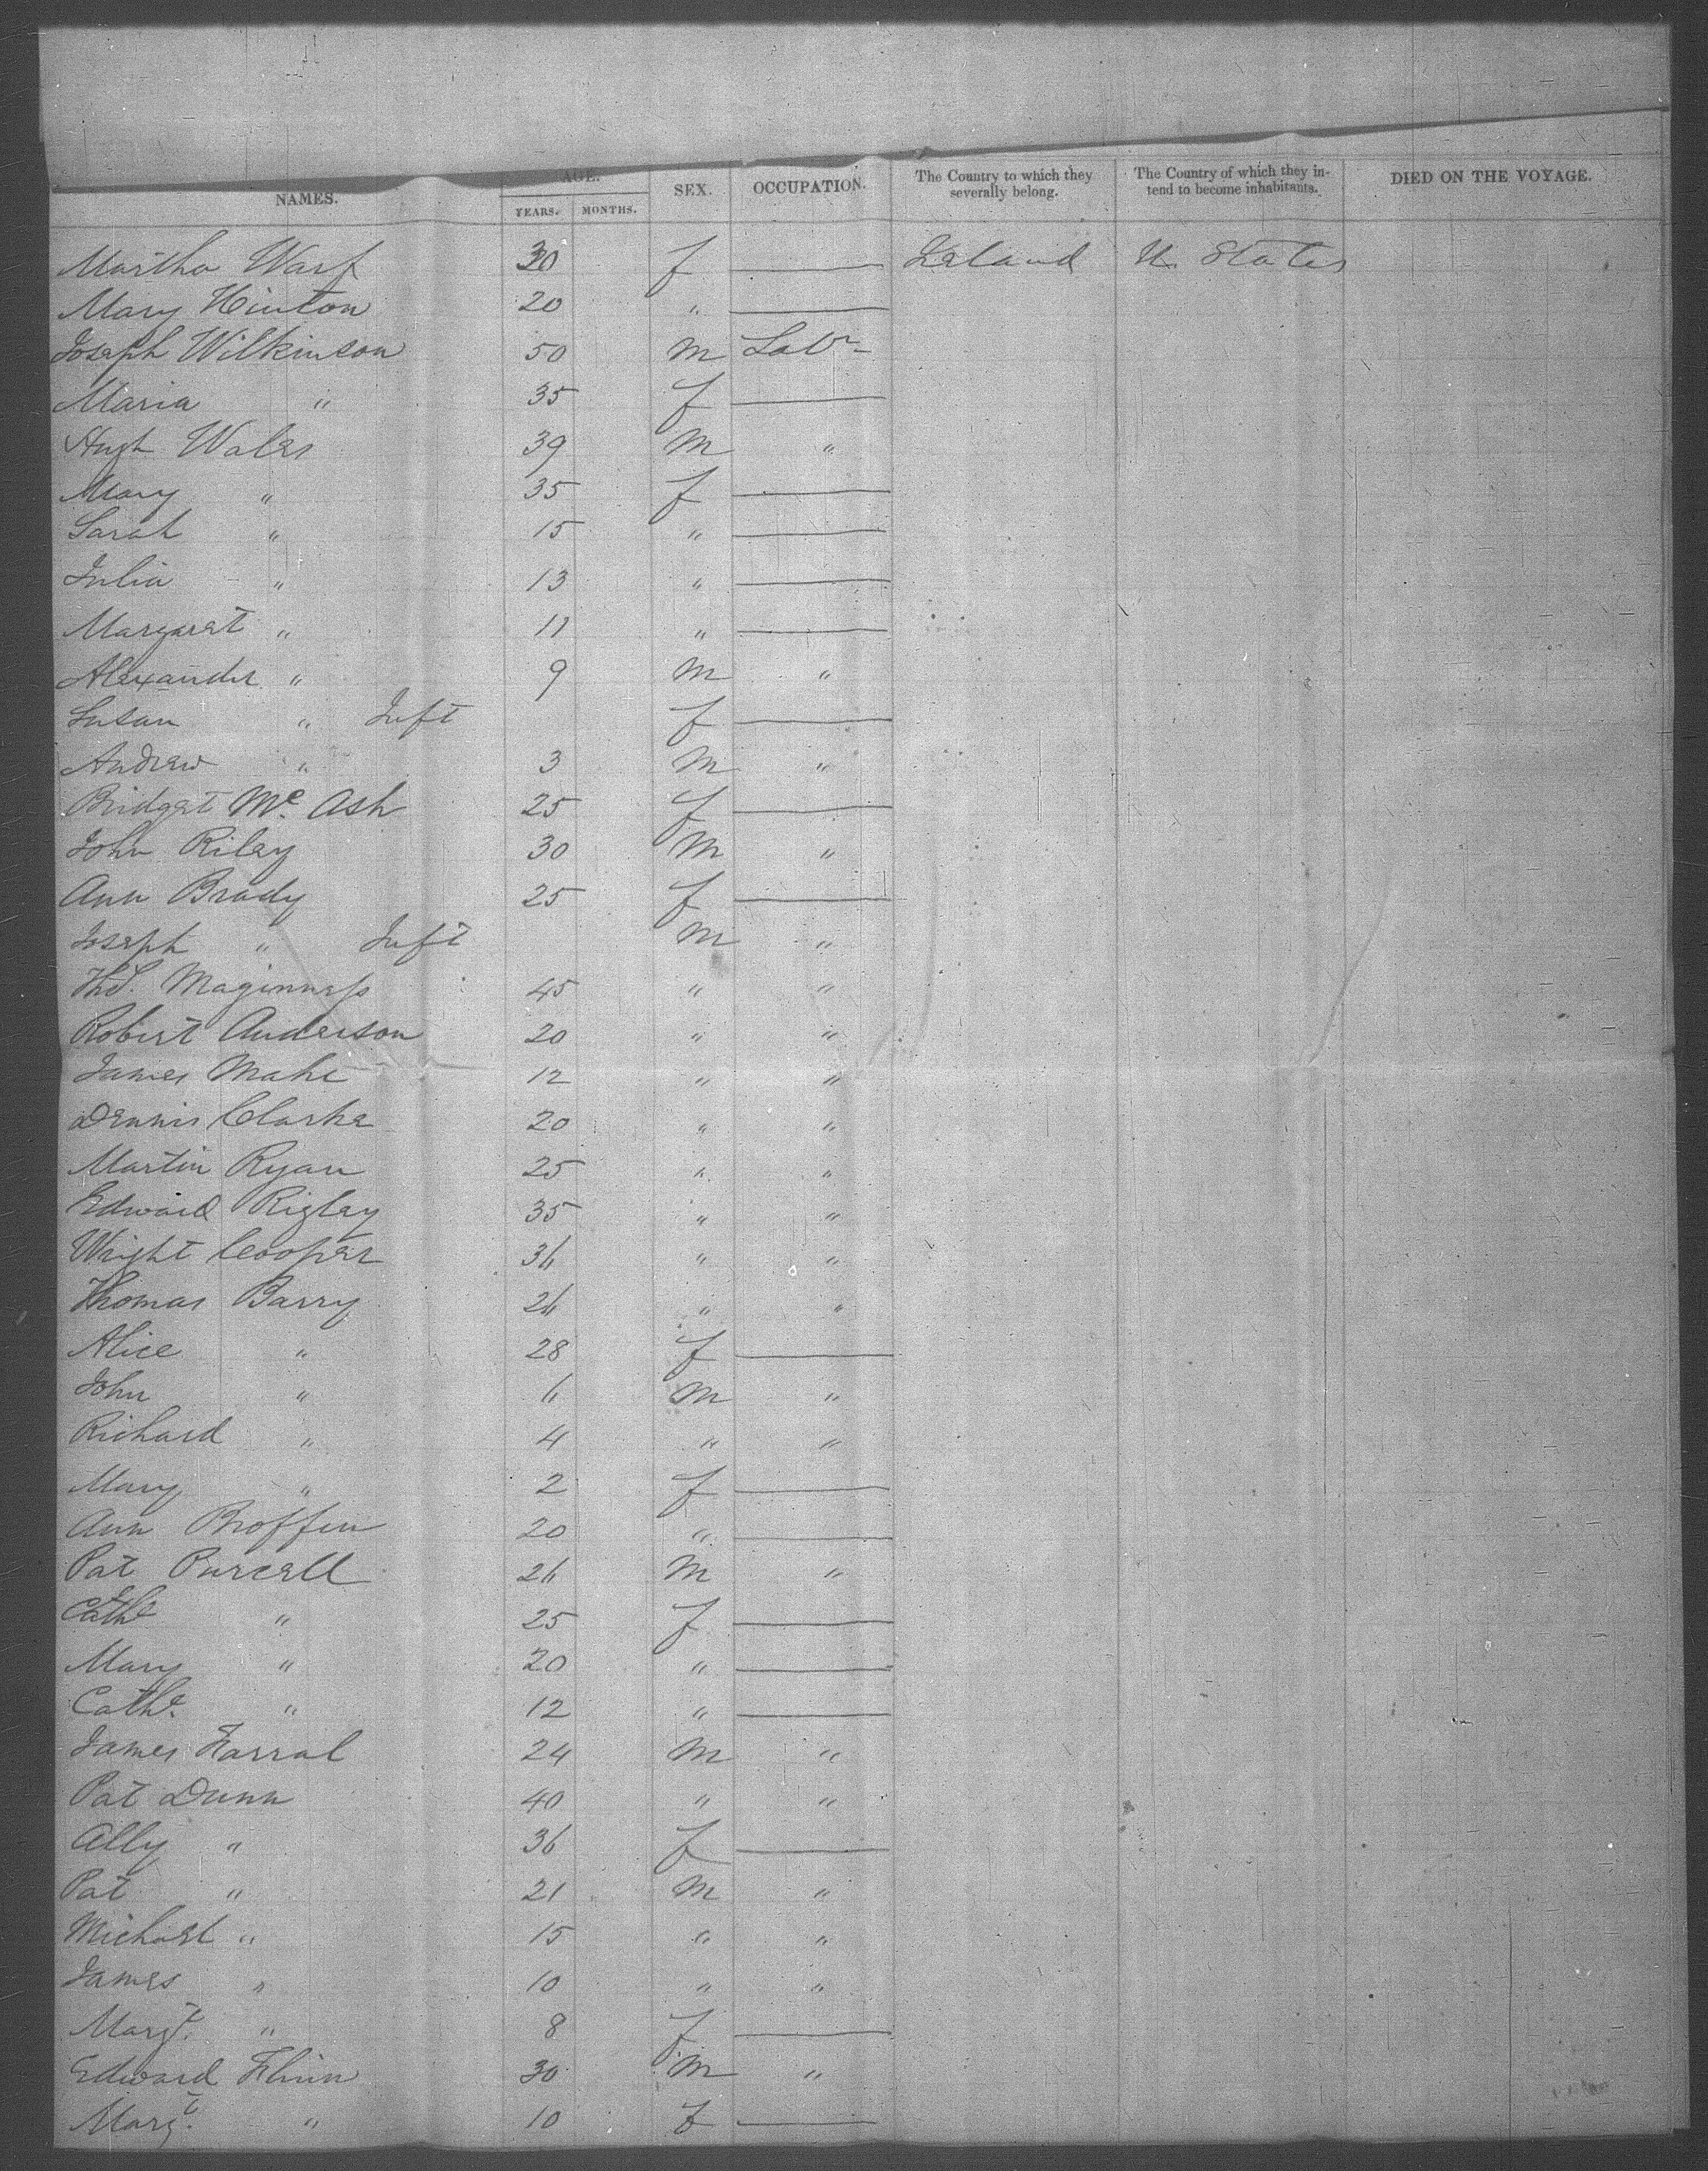 NAMES. AGE. SEX. OCCUPATION. The Country to which they severally belong. The Country of which they intend to become inhabitants. DIED ON THE VOYAGE.
YEARS. MONTHS.
Martha 30 f — Ireland U. States
Mary Hinton 20 " —
Joseph Wilkinson 50 m Labr
Maria " 35 f —
Hugh Wales 39 m "
Mary " 35 f —
Sarah " 15 " —
Julia " 13 " —
Margaret " 11 " —
Alexander " 9 m "
Susan " Inft f —
Andrew " 3 m "
Bridget Mc. Ash 25 f —
John Riley 30 m "
Ann Brady 25 f —
Joseph " Inft m "
Ths. Maginness 45 " "
Robert Anderson 20 " "
James Mahe 12 " "
Dennis Clarke 20 " "
Martin Ryan 25 " "
Edward Rigley 35 " "
Wright Cooper 36 " "
Thomas Barry 26 " "
Alice " 28 f —
John " 6 m "
Richard " 4 " "
Mary " 2 f —
Ann Broffen 20 " —
Pat Purcell 26 m "
Cathe " 25 f —
Mary " 20 " —
Cathe. " 12 " —
James Farral 24 m "
Pat Dunn 40 " "
Ally " 36 f —
Pat " 21 m "
Michael " 15 " "
James " 10 " "
Margt. " 8 f —
Edward Flinn 30 m "
Margt. " 10 f —